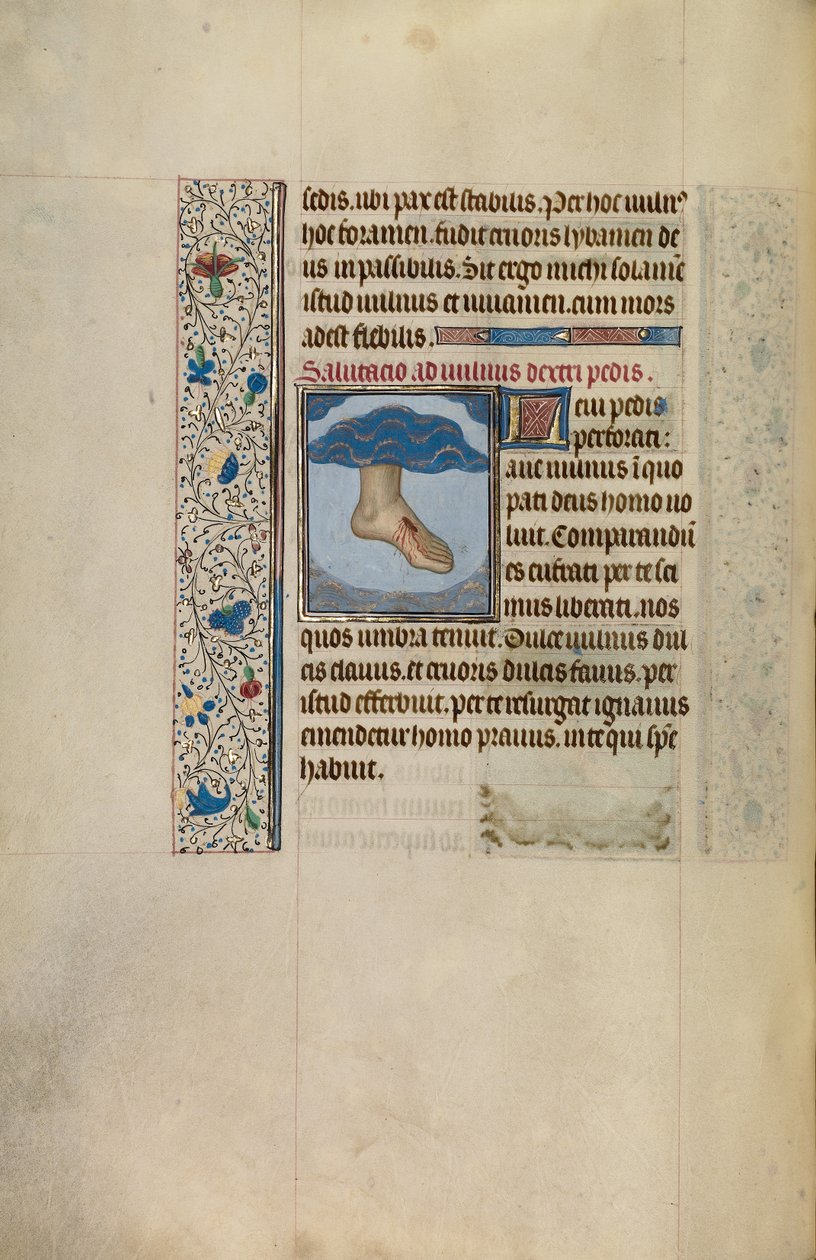 sedis. ubi pax est stabilis. Per hoc uuln⁹
hoc foramen. fudit cruoris lybamen de
us inpassibilis. Sit ergo michi solamē
istud uulnus et iuuamen. cum mors
adest flebilis.
Salutacio ad uulnus dextri pedis.
Dexri pedis
perforati:
aue uulnus ī quo
pati deus homo uo
luit. Comparandū
es cufrati per te su
mus liberati. nos
quos umbra tenuit. Dulce uulnus dul
cis clauus. et cruoris dulcis fauus. per
istud efferbuit. per te resurgat ignauus
emendetur homo prauus. in te qui spē
habuit.